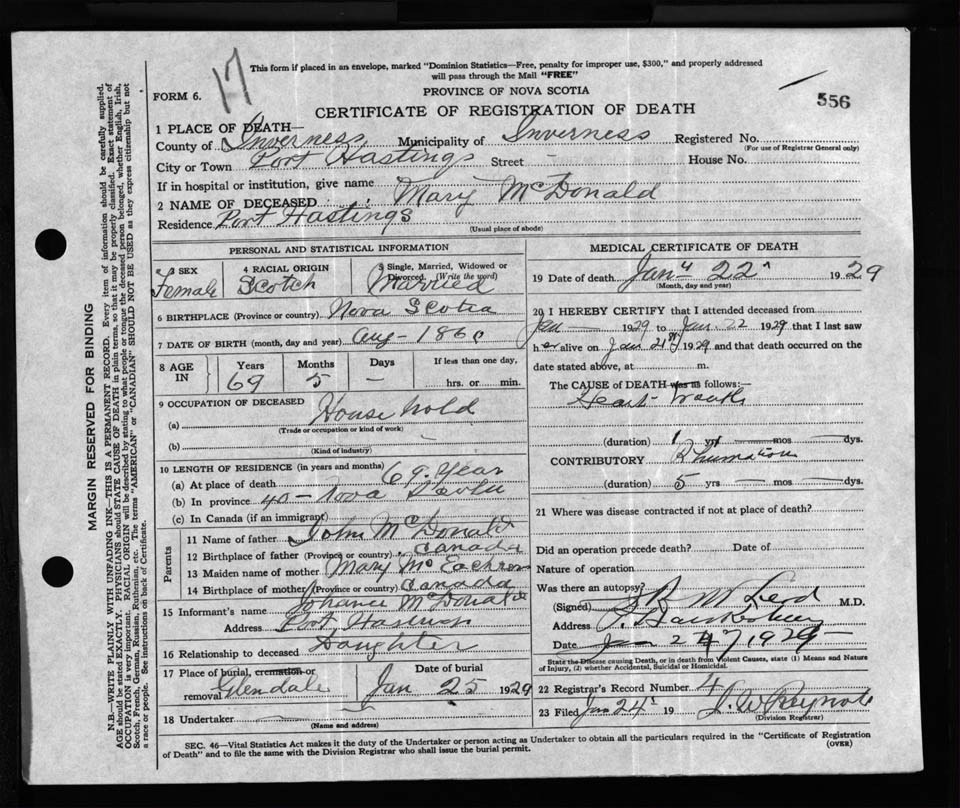 17
This form if placed in an envelope, marked "Dominion Statistics—Free, penalty for improper use, $300," and properly addressed
will pass through the Mail "FREE"
FORM 6.
PROVINCE OF NOVA SCOTIA
CERTIFICATE OF REGISTRATION OF DEATH
556
1 PLACE OF DEATH—
County of Inverness Municipality of Inverness Registered No.
(For use of Registrar General only)
City or Town Port Hastings Street — House No.
If in hospital or institution, give name
2 NAME OF DECEASED Mary McDonald
Residence Port Hastings
(Usual place of abode)
PERSONAL AND STATISTICAL INFORMATION
3 SEX Female
4 RACIAL ORIGIN Scotch
5 Single, Married, Widowed or Divorced. (Write the word) Married
6 BIRTHPLACE (Province or country) Nova Scotia
7 DATE OF BIRTH (month, day and year) Aug - 186
8 AGE IN Years 69 Months 5 Days — If less than one day, hrs. or min.
9 OCCUPATION OF DECEASED
(a) House hold
(Trade or occupation or kind of work)
(b)
(Kind of industry)
10 LENGTH OF RESIDENCE (in years and months)
(a) At place of death 69 Year
(b) In province 40 - Nova Scotia
(c) In Canada (if an immigrant)
Parents
11 Name of father John McDonald
12 Birthplace of father (Province or country) Canada
13 Maiden name of mother Mary McEachren
14 Birthplace of mother (Province or country) Canada
15 Informant's name McDonald
Address Port Hastings
16 Relationship to deceased Daughter
17 Place of burial, cremation or removal Glendale
Date of burial Jan 25 1929
18 Undertaker
(Name and address)
MEDICAL CERTIFICATE OF DEATH
19 Date of death Jany 22 1929
(Month, day and year)
20 I HEREBY CERTIFY that I attended deceased from
Jan — 1929 to Jan. 22 1929 that I last saw
her alive on Jan 21st 1929 and that death occurred on the
date stated above, at m.
The CAUSE of DEATH was as follows:—
Heart
(duration) 1 yrs — mos — dys.
CONTRIBUTORY Rhumatism
(duration) 5 yrs — mos — dys.
21 Where was disease contracted if not at place of death?
Did an operation precede death? Date of
Nature of operation
Was there an autopsy?
(Signed) M.D.
Address P. Hawkesbury
Date Jan 24 1929
State the Disease causing Death, or in death from Violent Causes, state (1) Means and Nature
of Injury, (2) whether Accidental, Suicidal or Homicidal.
22 Registrar's Record Number 4
23 Filed Jan 24 19
(Division Registrar)
SEC. 46—Vital Statistics Act makes it the duty of the Undertaker or person acting as Undertaker to obtain all the particulars required in the "Certificate of Registration
of Death" and to file the same with the Division Registrar who shall issue the burial permit.
(OVER)
MARGIN RESERVED FOR BINDING
N.B.—WRITE PLAINLY WITH UNFADING INK—THIS IS A PERMANENT RECORD. Every item of information should be carefully supplied.
AGE should be stated EXACTLY. PHYSICIANS should STATE CAUSE OF DEATH in plain terms, so that it may be properly classified. Exact statement of
OCCUPATION is very important. RACIAL ORIGIN will be described by stating to what people or tongue the deceased person belonged, whether English, Irish,
Scotch, French, German, Russian, Ruthenian, etc. The terms "AMERICAN" or "CANADIAN" SHOULD NOT BE USED as they express citizenship but not
a race or people. See instructions on back of Certificate.